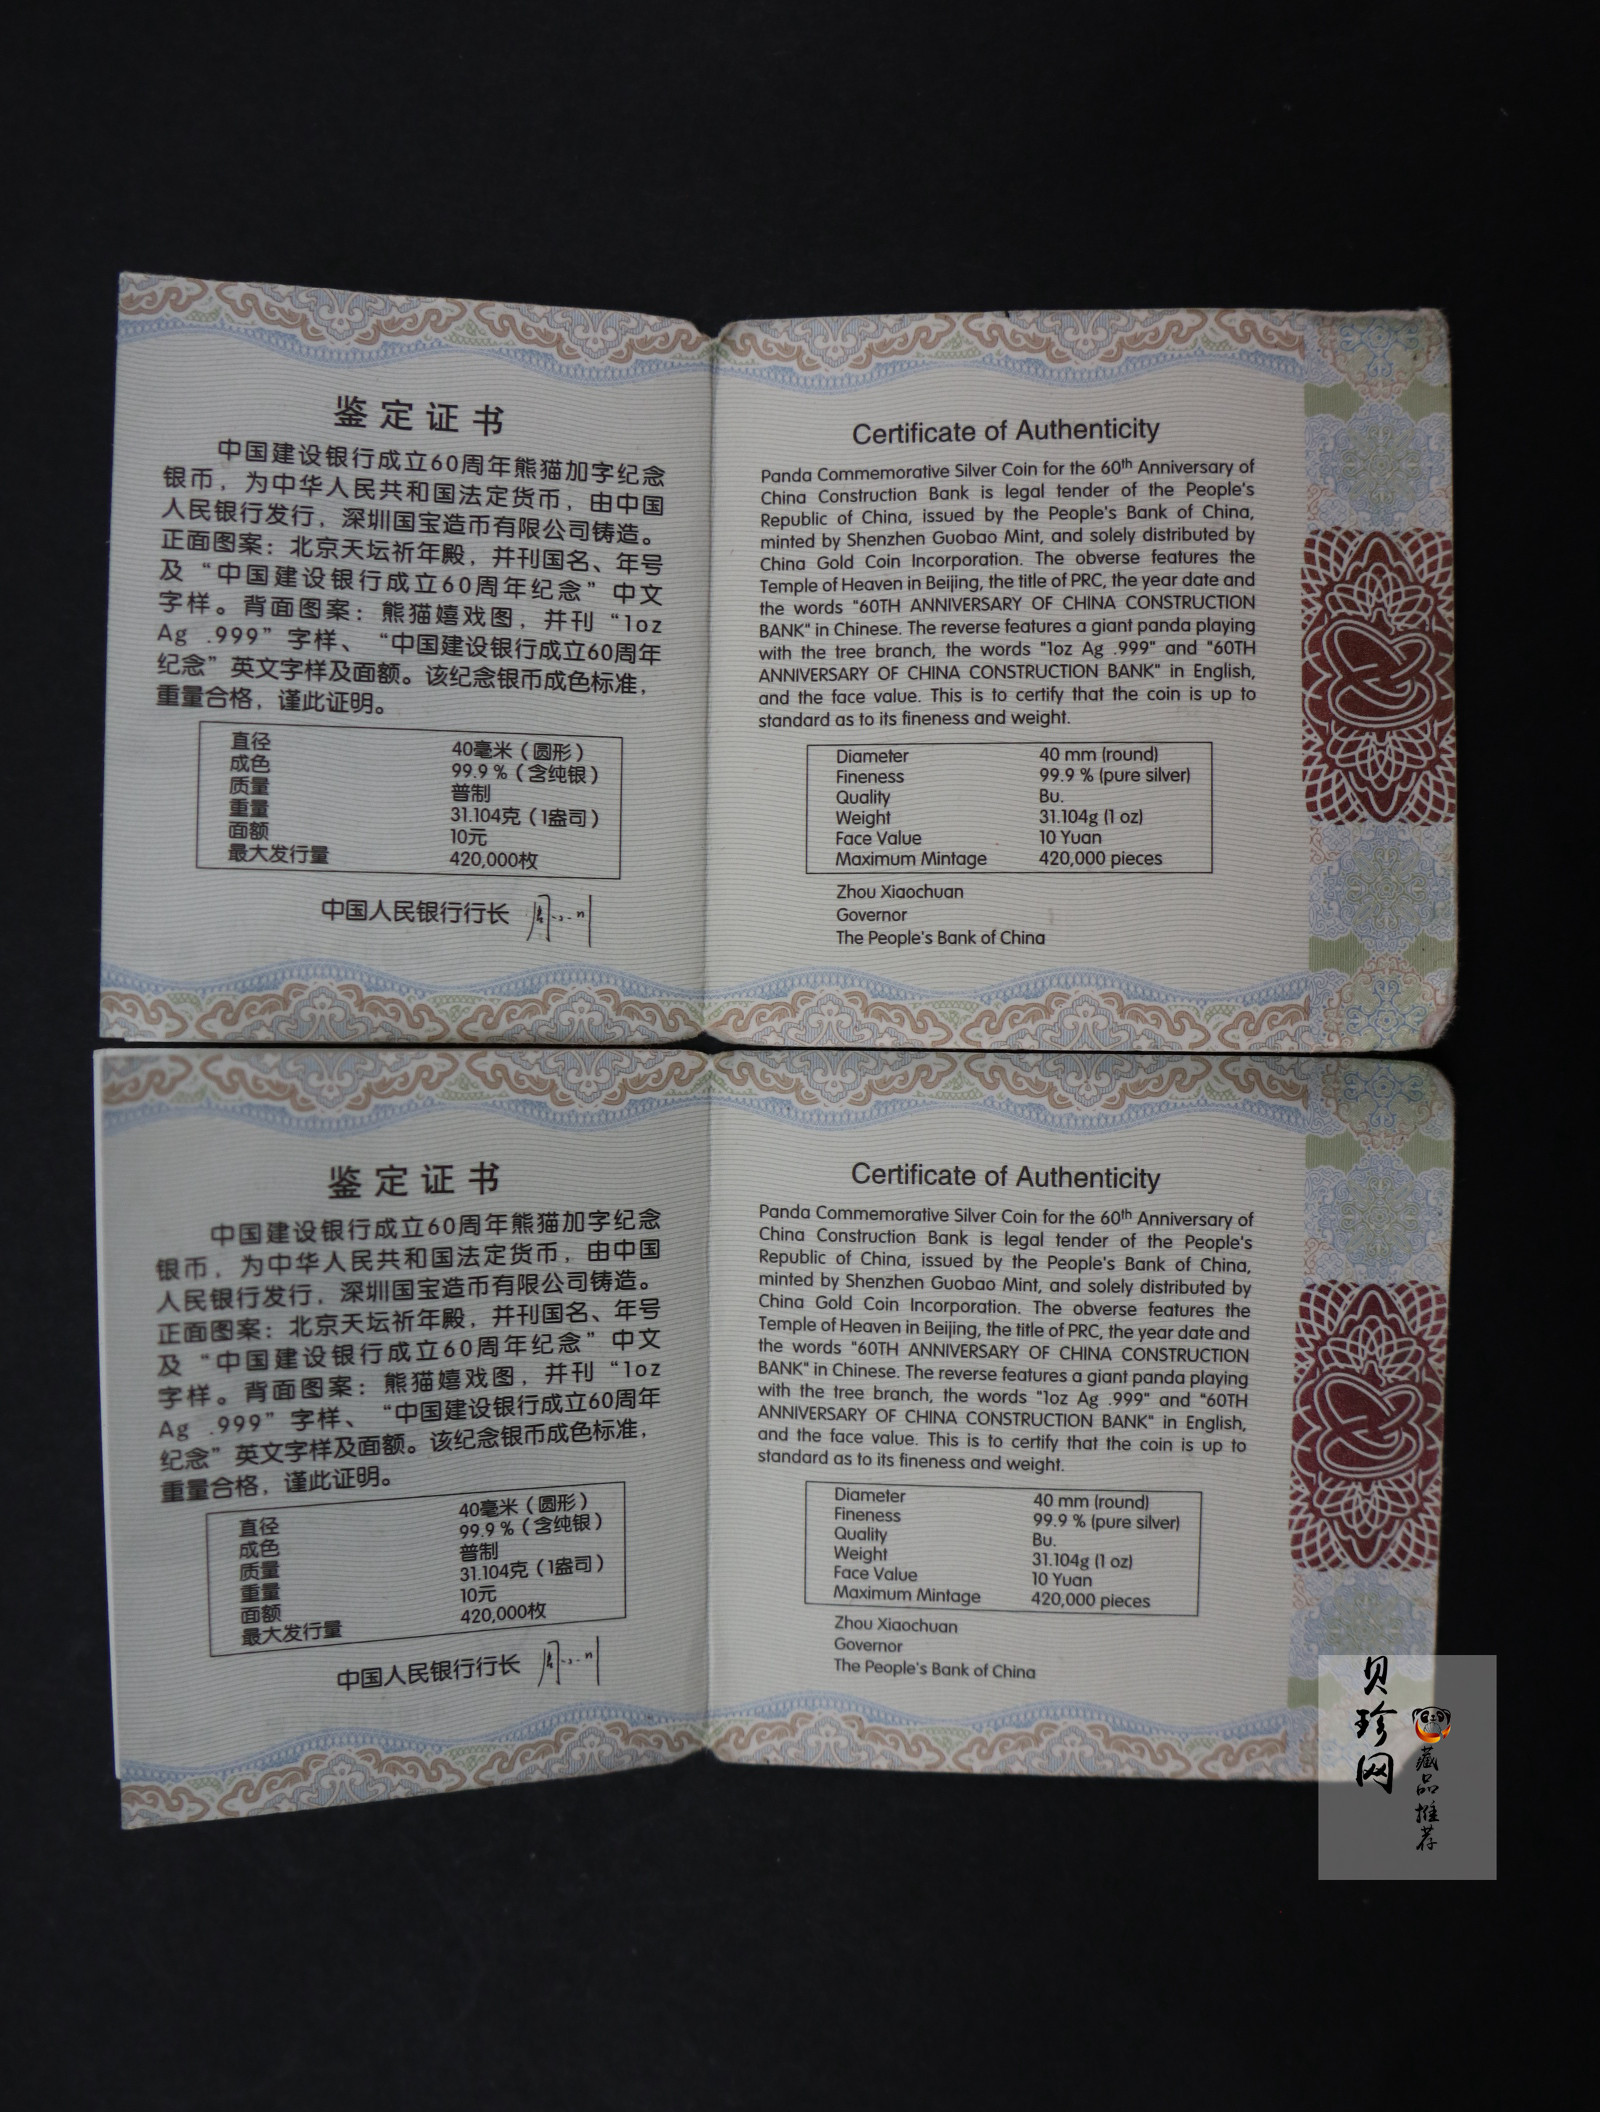 鉴定证书
中国建设银行成立60周年熊猫加字纪念
银币，为中华人民共和国法定货币，由中国
人民银行发行，深圳国宝造币有限公司铸造。
正面图案：北京天坛祈年殿，并刊国名、年号
及“中国建设银行成立60周年纪念”中文
字样。背面图案：熊猫嬉戏图，并刊“1oz
Ag .999”字样、“中国建设银行成立60周年
纪念”英文字样及面额。该纪念银币成色标准，
重量合格，谨此证明。
直径 40毫米（圆形）
成色 99.9 %（含纯银）
质量 普制
重量 31.104克（1盎司）
面额 10元
最大发行量 420,000枚
中国人民银行行长
Certificate of Authenticity
Panda Commemorative Silver Coin for the 60th Anniversary of
China Construction Bank is legal tender of the People's
Republic of China, issued by the People's Bank of China,
minted by Shenzhen Guobao Mint, and solely distributed by
China Gold Coin Incorporation. The obverse features the
Temple of Heaven in Beijing, the title of PRC, the year date and
the words "60TH ANNIVERSARY OF CHINA CONSTRUCTION
BANK" in Chinese. The reverse features a giant panda playing
with the tree branch, the words "1oz Ag .999" and "60TH
ANNIVERSARY OF CHINA CONSTRUCTION BANK" in English,
and the face value. This is to certify that the coin is up to
standard as to its fineness and weight.
Diameter 40 mm (round)
Fineness 99.9 % (pure silver)
Quality Bu.
Weight 31.104g (1 oz)
Face Value 10 Yuan
Maximum Mintage 420,000 pieces
Zhou Xiaochuan
Governor
The People's Bank of China
鉴定证书
中国建设银行成立60周年熊猫加字纪念
银币，为中华人民共和国法定货币，由中国
人民银行发行，深圳国宝造币有限公司铸造。
正面图案：北京天坛祈年殿，并刊国名、年号
及“中国建设银行成立60周年纪念”中文
字样。背面图案：熊猫嬉戏图，并刊“1oz
Ag .999”字样、“中国建设银行成立60周年
纪念”英文字样及面额。该纪念银币成色标准，
重量合格，谨此证明。
直径 40毫米（圆形）
成色 99.9 %（含纯银）
质量 普制
重量 31.104克（1盎司）
面额 10元
最大发行量 420,000枚
中国人民银行行长
Certificate of Authenticity
Panda Commemorative Silver Coin for the 60th Anniversary of
China Construction Bank is legal tender of the People's
Republic of China, issued by the People's Bank of China,
minted by Shenzhen Guobao Mint, and solely distributed by
China Gold Coin Incorporation. The obverse features the
Temple of Heaven in Beijing, the title of PRC, the year date and
the words "60TH ANNIVERSARY OF CHINA CONSTRUCTION
BANK" in Chinese. The reverse features a giant panda playing
with the tree branch, the words "1oz Ag .999" and "60TH
ANNIVERSARY OF CHINA CONSTRUCTION BANK" in English,
and the face value. This is to certify that the coin is up to
standard as to its fineness and weight.
Diameter 40 mm (round)
Fineness 99.9 % (pure silver)
Quality Bu.
Weight 31.104g (1 oz)
Face Value 10 Yuan
Maximum Mintage 420,000 pieces
Zhou Xiaochuan
Governor
The People's Bank of China
贝珍网
藏品推荐